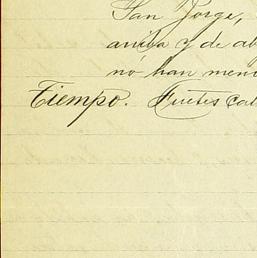 San Jorge,
arriba y de ab
nó han meni
Tiempo. Fuertes cal